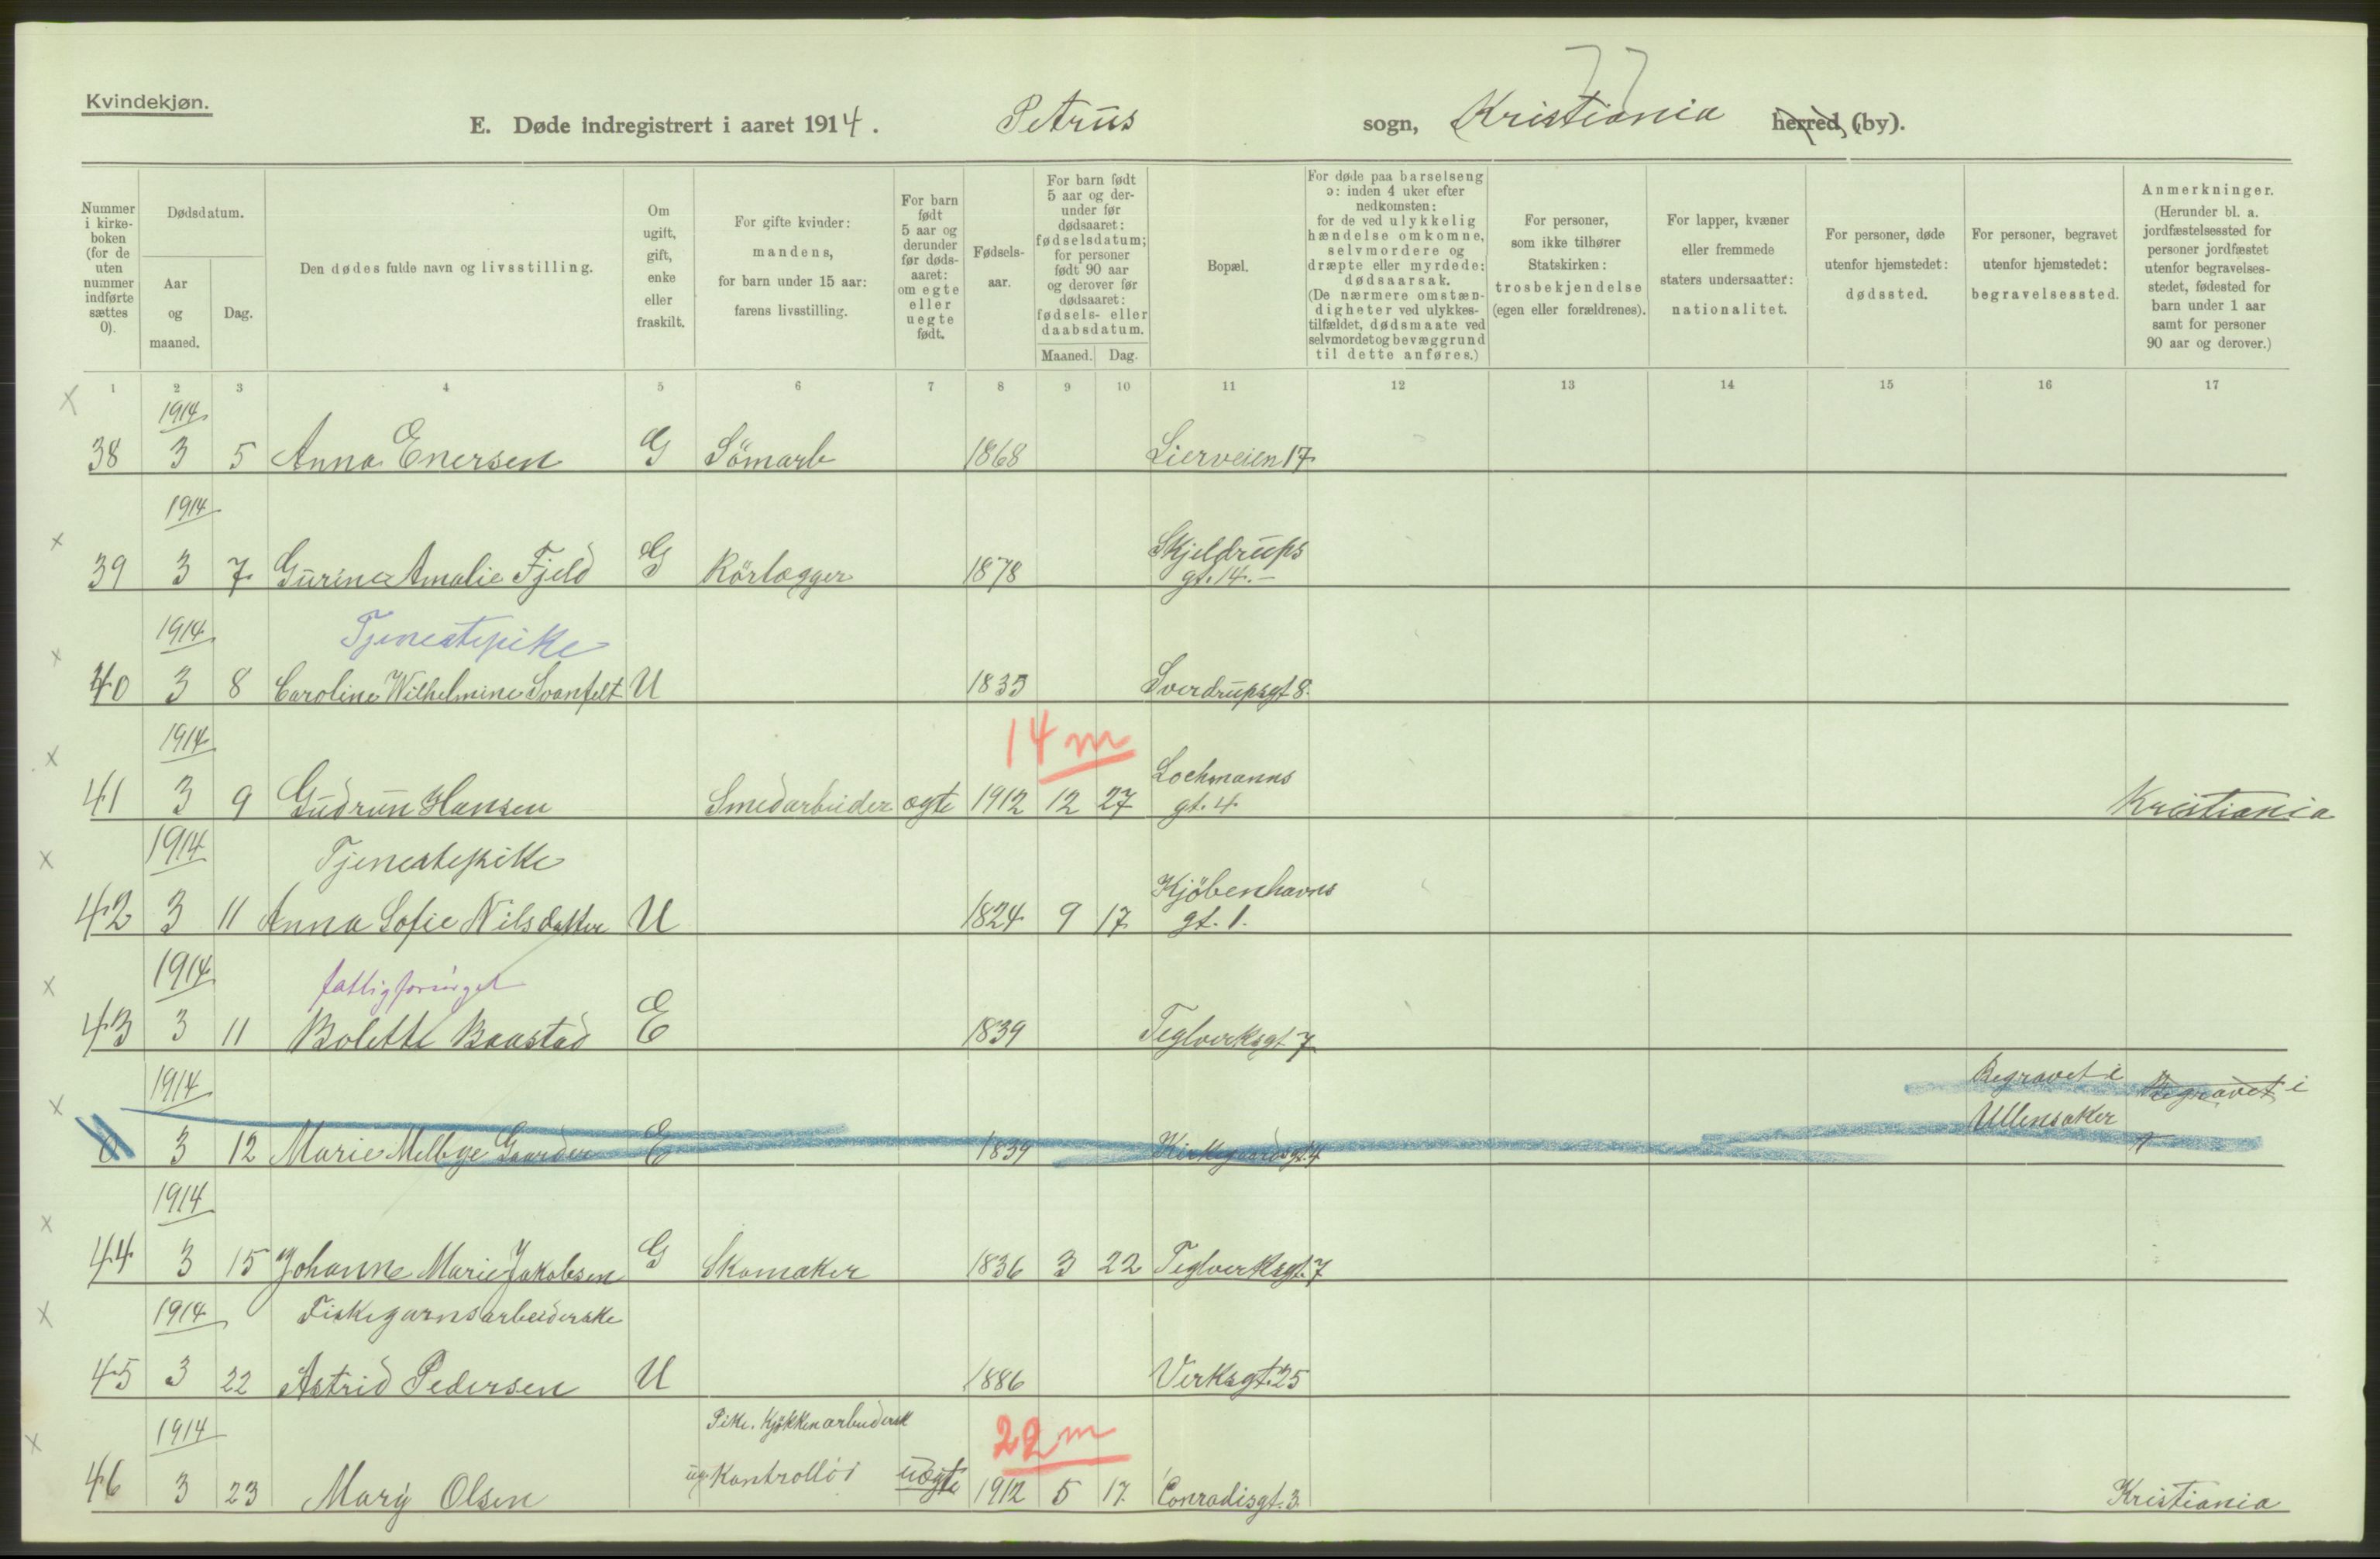 77
Kvindekjøn.
E. Døde indregistrert i aaret 1914. Petrus sogn, Kristiania herred, (by).
Nummer i kirke- boken (for de uten nummer indførte sættes 0).
Dødsdatum.
Aar og maaned.
Dag.
Den dødes fulde navn og livsstilling.
Om ugift, gift, enke eller fraskilt.
For gifte kvinder: mandens, for barn under 15 aar: farens livsstilling.
For barn født 5 aar og derunder før døds- aaret: om egte eller uegte født.
Fødsels- aar.
For barn født 5 aar og der- under før dødsaaret: fødselsdatum; for personer født 90 aar og derover før dødsaaret: fødsels- eller daabsdatum.
Maaned. Dag.
Bopæl.
For døde paa barselseng ɔ: inden 4 uker efter nedkomsten: for de ved ulykkelig hændelse omkomne, selvmordere og dræpte eller myrdede: dødsaarsak. (De nærmere omstæn- digheter ved ulykkes- tilfældet, dødsmaate ved selvmordet og bevæggrund til dette anføres.)
For personer, som ikke tilhører Statskirken: trosbekjendelse (egen eller forældrenes).
For lapper, kvæner eller fremmede staters undersaatter: nationalitet.
For personer, døde utenfor hjemstedet: dødssted.
For personer, begravet utenfor hjemstedet: begravelsessted.
Anmerkninger. (Herunder bl. a. jordfæstelsessted for personer jordfæstet utenfor begravelses- stedet, fødested for barn under 1 aar samt for personer 90 aar og derover.)
1 2 3 4 5 6 7 8 9 10 11 12 13 14 15 16 17
1914
38 3 5 Anna Enersen G Sömarb 1868 Lierveien 17
1914
Skjeldrups
39 3 7 Gurine Amalie Fjeld G Rörlægger 1878 gt. 14. –
1914 Tjenestepike
40 3 8 Caroline Wilhelmine Svanfelt U 1835 Sverdrupsgt 8.
1914 14 m
Lochmanns
41 3 9 Gudrun Hansen Smedarbeider ægte 1912 12 27 gt. 4 Kristiania
1914 Tjenestepike
Kjöbenhavns
42 3 11 Anna Sofie Nilsdatter U 1824 9 17 gt. 1.
1914 fattigforsörget
43 3 11 Bolette Baastad E 1839 Teglverksgt 7
1914 Begravet i Begravet i
Ullensaker
0 3 12 Marie Melbye Gaarder E 1839 Kirkegaardsgt. 4
1914
44 3 15 Johanne Marie Jakobsen G Skomaker 1836 3 22 Teglverksgt. 7
1914 Fiskegarnsarbeiderske
45 3 22 Astrid Pedersen U 1886 Verksgt. 25
1914 Pike. Kjøkkenarbeidersk 22 m
46 3 23 Mary Olsen ug. Kontrollör uægte 1912 5 17. Conradisgt. 3. Kristiania